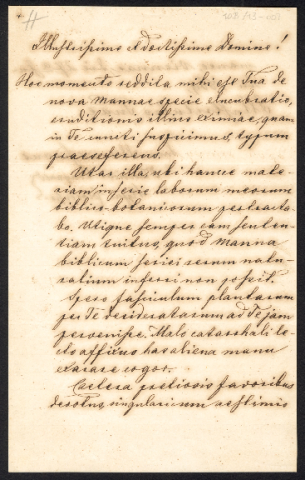 Illustrissime et doctissime Domine!
Hoc momento reddita mihi est Tua de
nova Mannae specie elucubratio,
eruditionis illius eximiae, quam
in Te cuncti suspicimus, typum
praeseferens.
Utar illa, ubi hancce mate-
riam in serie laborum meorum
biblico-botanicorum pertracta-
bo. Utique semper eam senten-
tiam tuitus, quod Manna
biblicum seriei rerum natu-
ralium inseri non possit.
Spero fasciculum plantarum
per Te desideratarum ad Te jam
pervenisse. Malo catarrhali le-
cto affixus has aliena manu
exarare cogor.
Caetera pretiosis favoribus
devotus, singularium aestimio